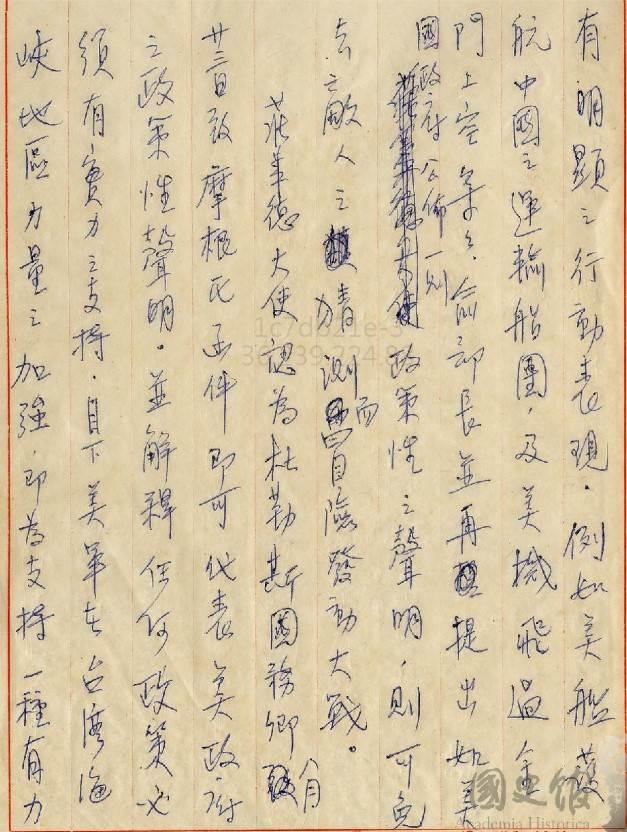 有明顯之行動表現。例如美艦護
航中國之運輸船團，及美機飛過金
門上空等々。俞部長並再提出如美
國政府公佈一則政策性之聲明，則可免
去敵人之猜測而冒險發動大戰。
莊華德大使認為杜勒斯國務卿八月
廿三日致摩根氏函件即可代表美政府
之政策性聲明。並解釋任何政策必
須有實力之支持。目下美軍在台灣海
峽地區力量之加強，即為支持一種有力
國史館
Academia Historica